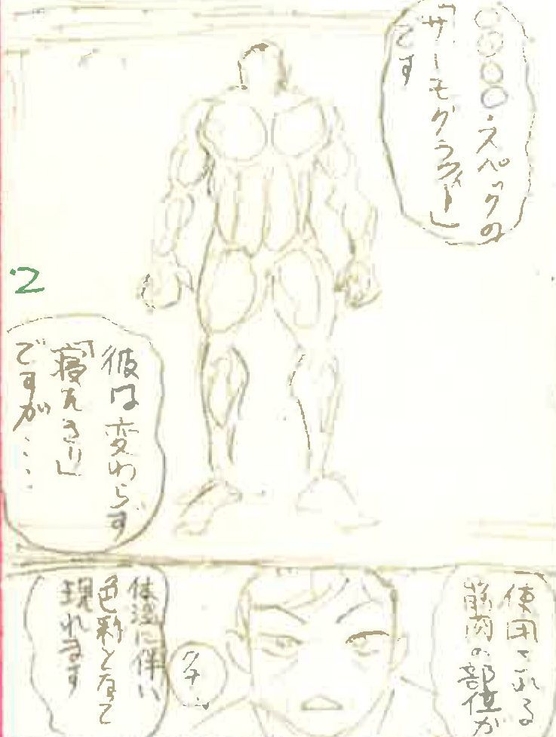 ○○○○スペックの
「サーモグラフィー」
です
2
彼は変わらず
「寝たきり」
ですが…
使用される
筋肉の部位が
体温に伴い
色彩となって
現れます